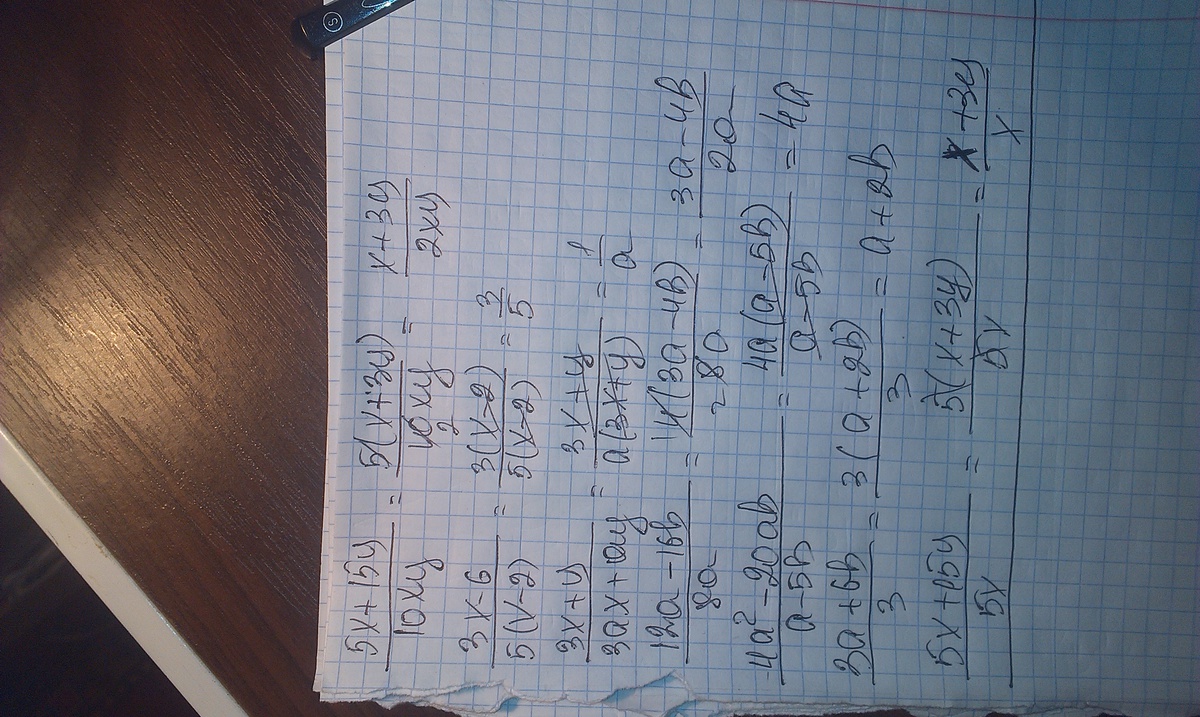 (5x+15y)/(10xy) = (5(x+3y))/(10xy) = (x+3y)/(2xy)
2
(3x-6)/(5(x-2)) = (3(x-2))/(5(x-2)) = 3/5
(3x+y)/(3ax+ay) = (3x+y)/(a(3x+y)) = 1/a
(12a-16b)/(8a) = (4(3a-4b))/(8a) = (3a-4b)/(2a)
2
(4a²-20ab)/(a-5b) = (4a(a-5b))/(a-5b) = 4a
(3a+6b)/3 = (3(a+2b))/3 = a+2b
(5x+15y)/(5x) = (5(x+3y))/(5x) = (x+3y)/x